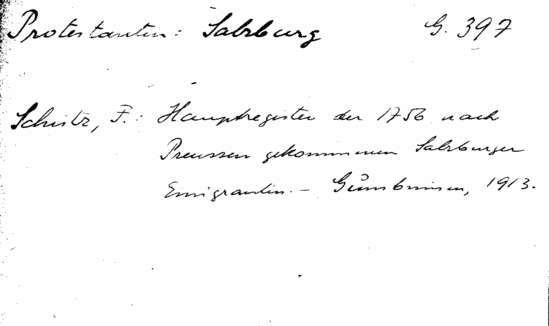 Protestanten: Salzburg G. 397
Schütz, F.: Hauptregister der 1756 nach
Preussen gekommenen Salzburger
Emigranten. - Gumbinnen, 1913.